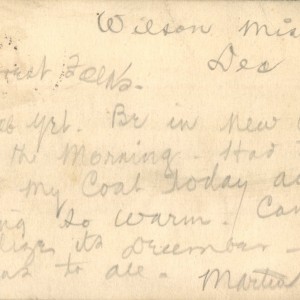 Wilson Mis
Dec
est Folks.
yet. Be in New
the Morning. Had
my Coat Today a
ng so warm. Can
lize its December —
as to all. Martia